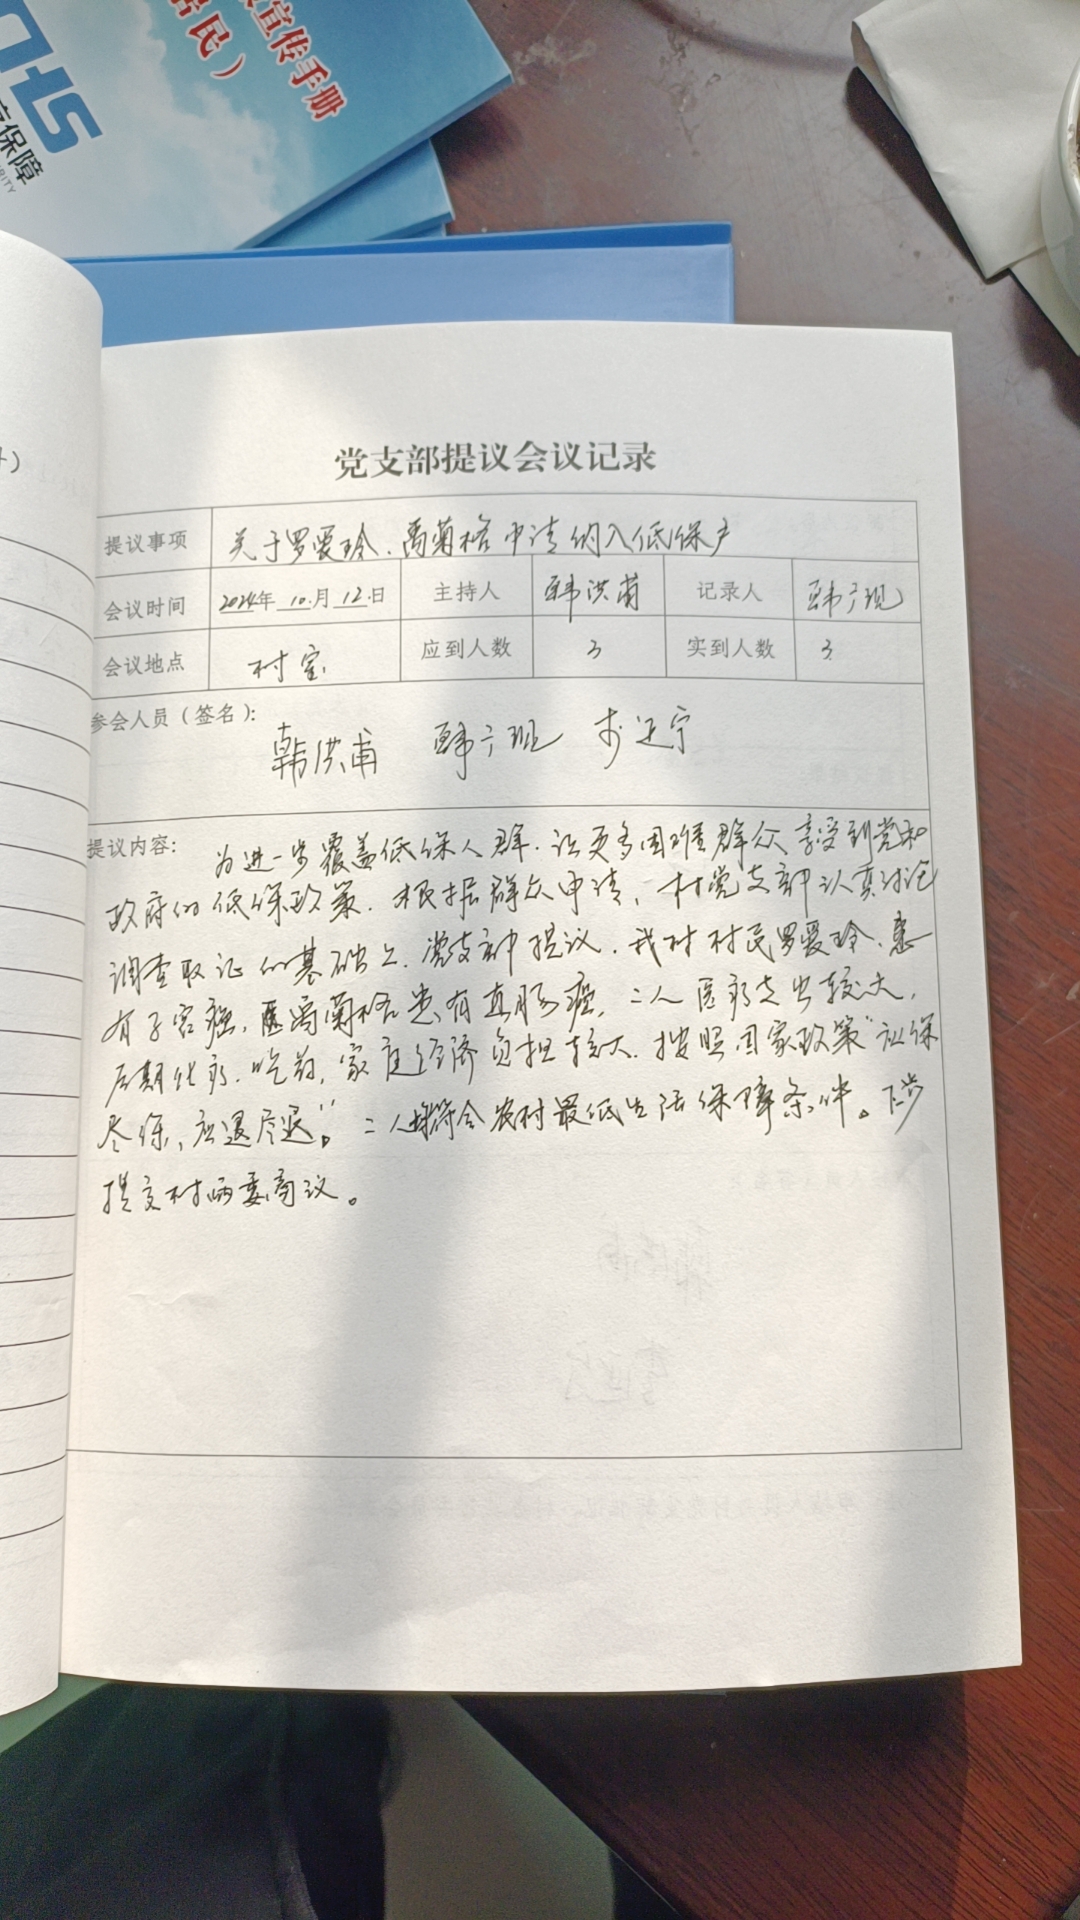 宣传手册
居民）
保障
党支部提议会议记录
提议事项 关于罗爱玲、禹菊格申请纳入低保户
会议时间 2024年 10月 12日 主持人 韩洪甫 记录人 韩广现
会议地点 村室 应到人数 3 实到人数 3
参会人员（签名）：
韩洪甫 韩广现
提议内容： 为进一步覆盖低保人群，让更多困难群众享受到党和
政府的低保政策，根据群众申请，村党支部认真讨论
调查取证的基础上，党支部提议，我村村民罗爱玲，患
有子宫癌，禹菊格患有直肠癌，二人医疗支出较大，
后期化疗、吃药，家庭经济负担较大，按照国家政策“应保
尽保，应退尽退”。二人均符合农村最低生活保障条件。下步
提交村两委商议。